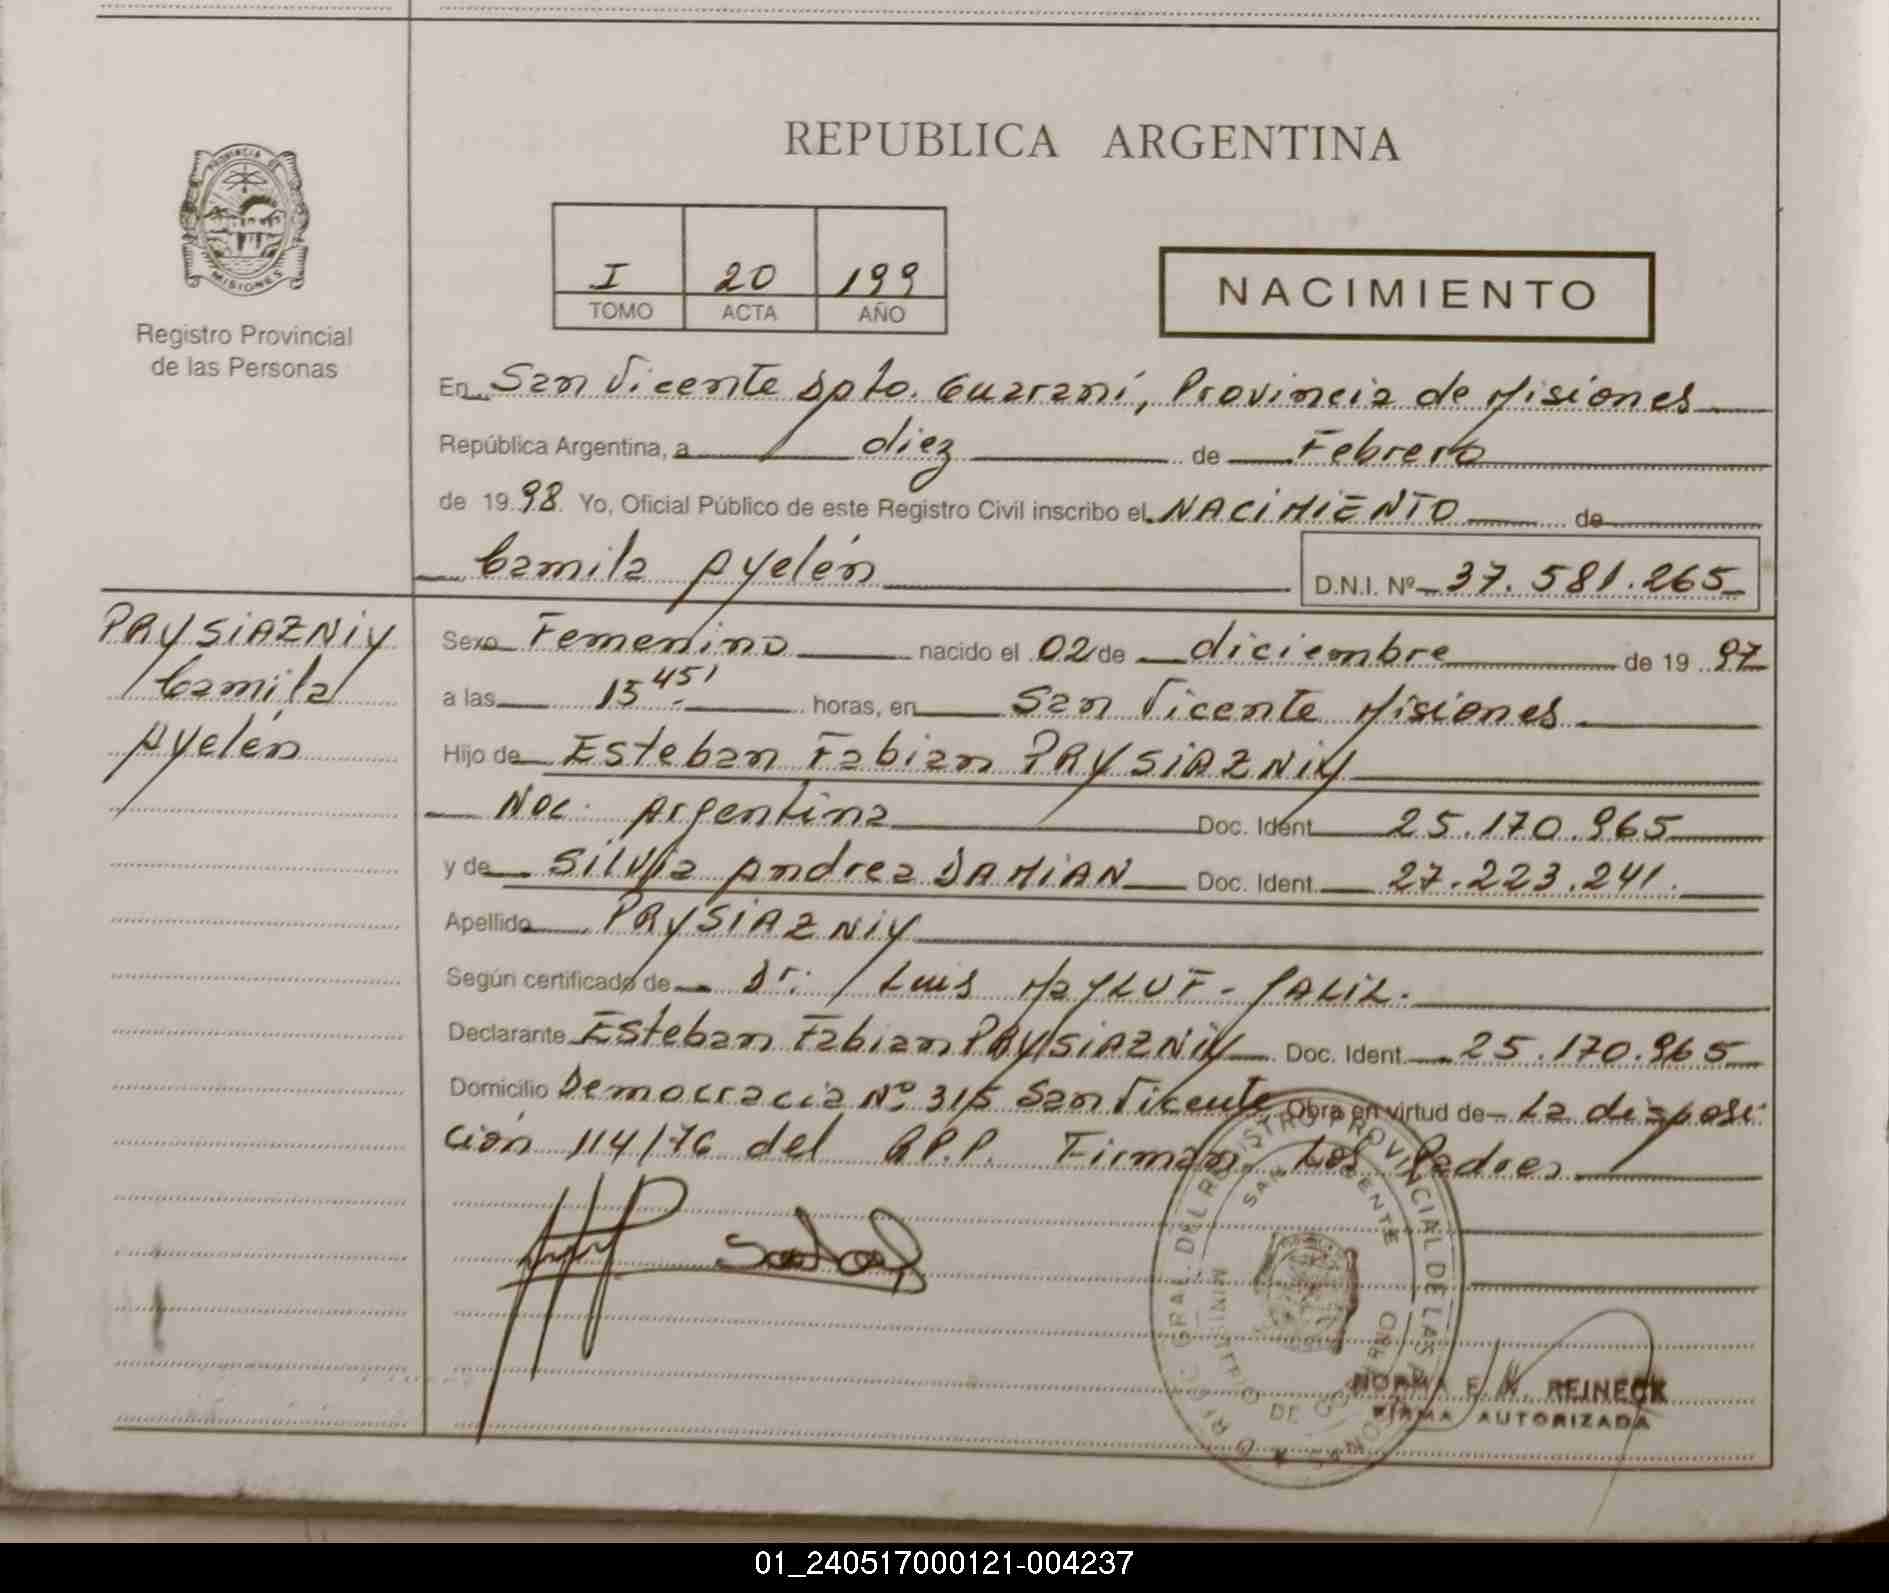 REPUBLICA ARGENTINA
PROVINCIA DE
MISIONES
Registro Provincial
de las Personas
I 20 199
TOMO ACTA AÑO
NACIMIENTO
En San Vicente Dpto. Guaraní, Provincia de Misiones
República Argentina, a diez de Febrero
de 1998 Yo, Oficial Público de este Registro Civil inscribo el NACIMIENTO de
Camila Ayelén D.N.I. Nº 37.581.265
PRYSIAZNIY
Camila
Ayelén
Sexo Femenino nacido el 02 de diciembre de 19 97
a las 15 45' horas, en San Vicente Misiones
Hijo de Esteban Fabian PRYSIAZNIY
Nac. Argentina Doc. Ident. 25.170.965
y de Silvia Andrea DAMIAN Doc. Ident. 27.223.241.
Apellido PRYSIAZNIY
Según certificado de Dr. Luis MAYLUF-JALIL.
Declarante Esteban Fabian PRYSIAZNIY Doc. Ident. 25.170.965
Domicilio Democracia Nº 315 San Vicente Obra en virtud de La disposi
ción 114/76 del R.P.P. Firman Los Padres
GRAL. DEL REGISTRO PROVINCIAL DE LAS
SAN VICENTE
MINISTERIO DE GOBIERNO
NORMA E. REINECK
FIRMA AUTORIZADA
01_240517000121-004237